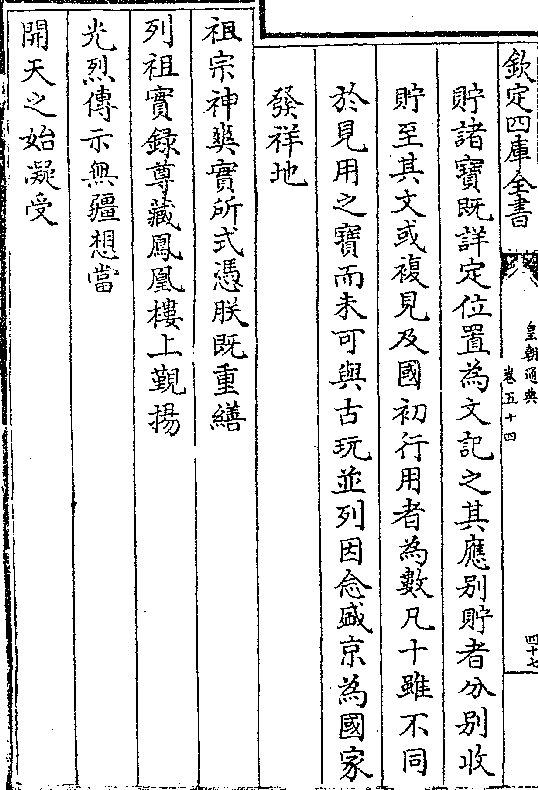 欽定四庫全書
皇朝通典
卷五十四
四十七
貯諸寶既詳定位置為文記之其應别貯者分别收
貯至其文或複見及國初行用者為數凡十雖不同
於見用之寶而未可與古玩並列因念盛京為國家
發祥地
祖宗神爽實所式憑朕既重繕
列祖實録尊藏鳳凰樓上覲揚
光烈傳示無疆想當
開天之始凝受